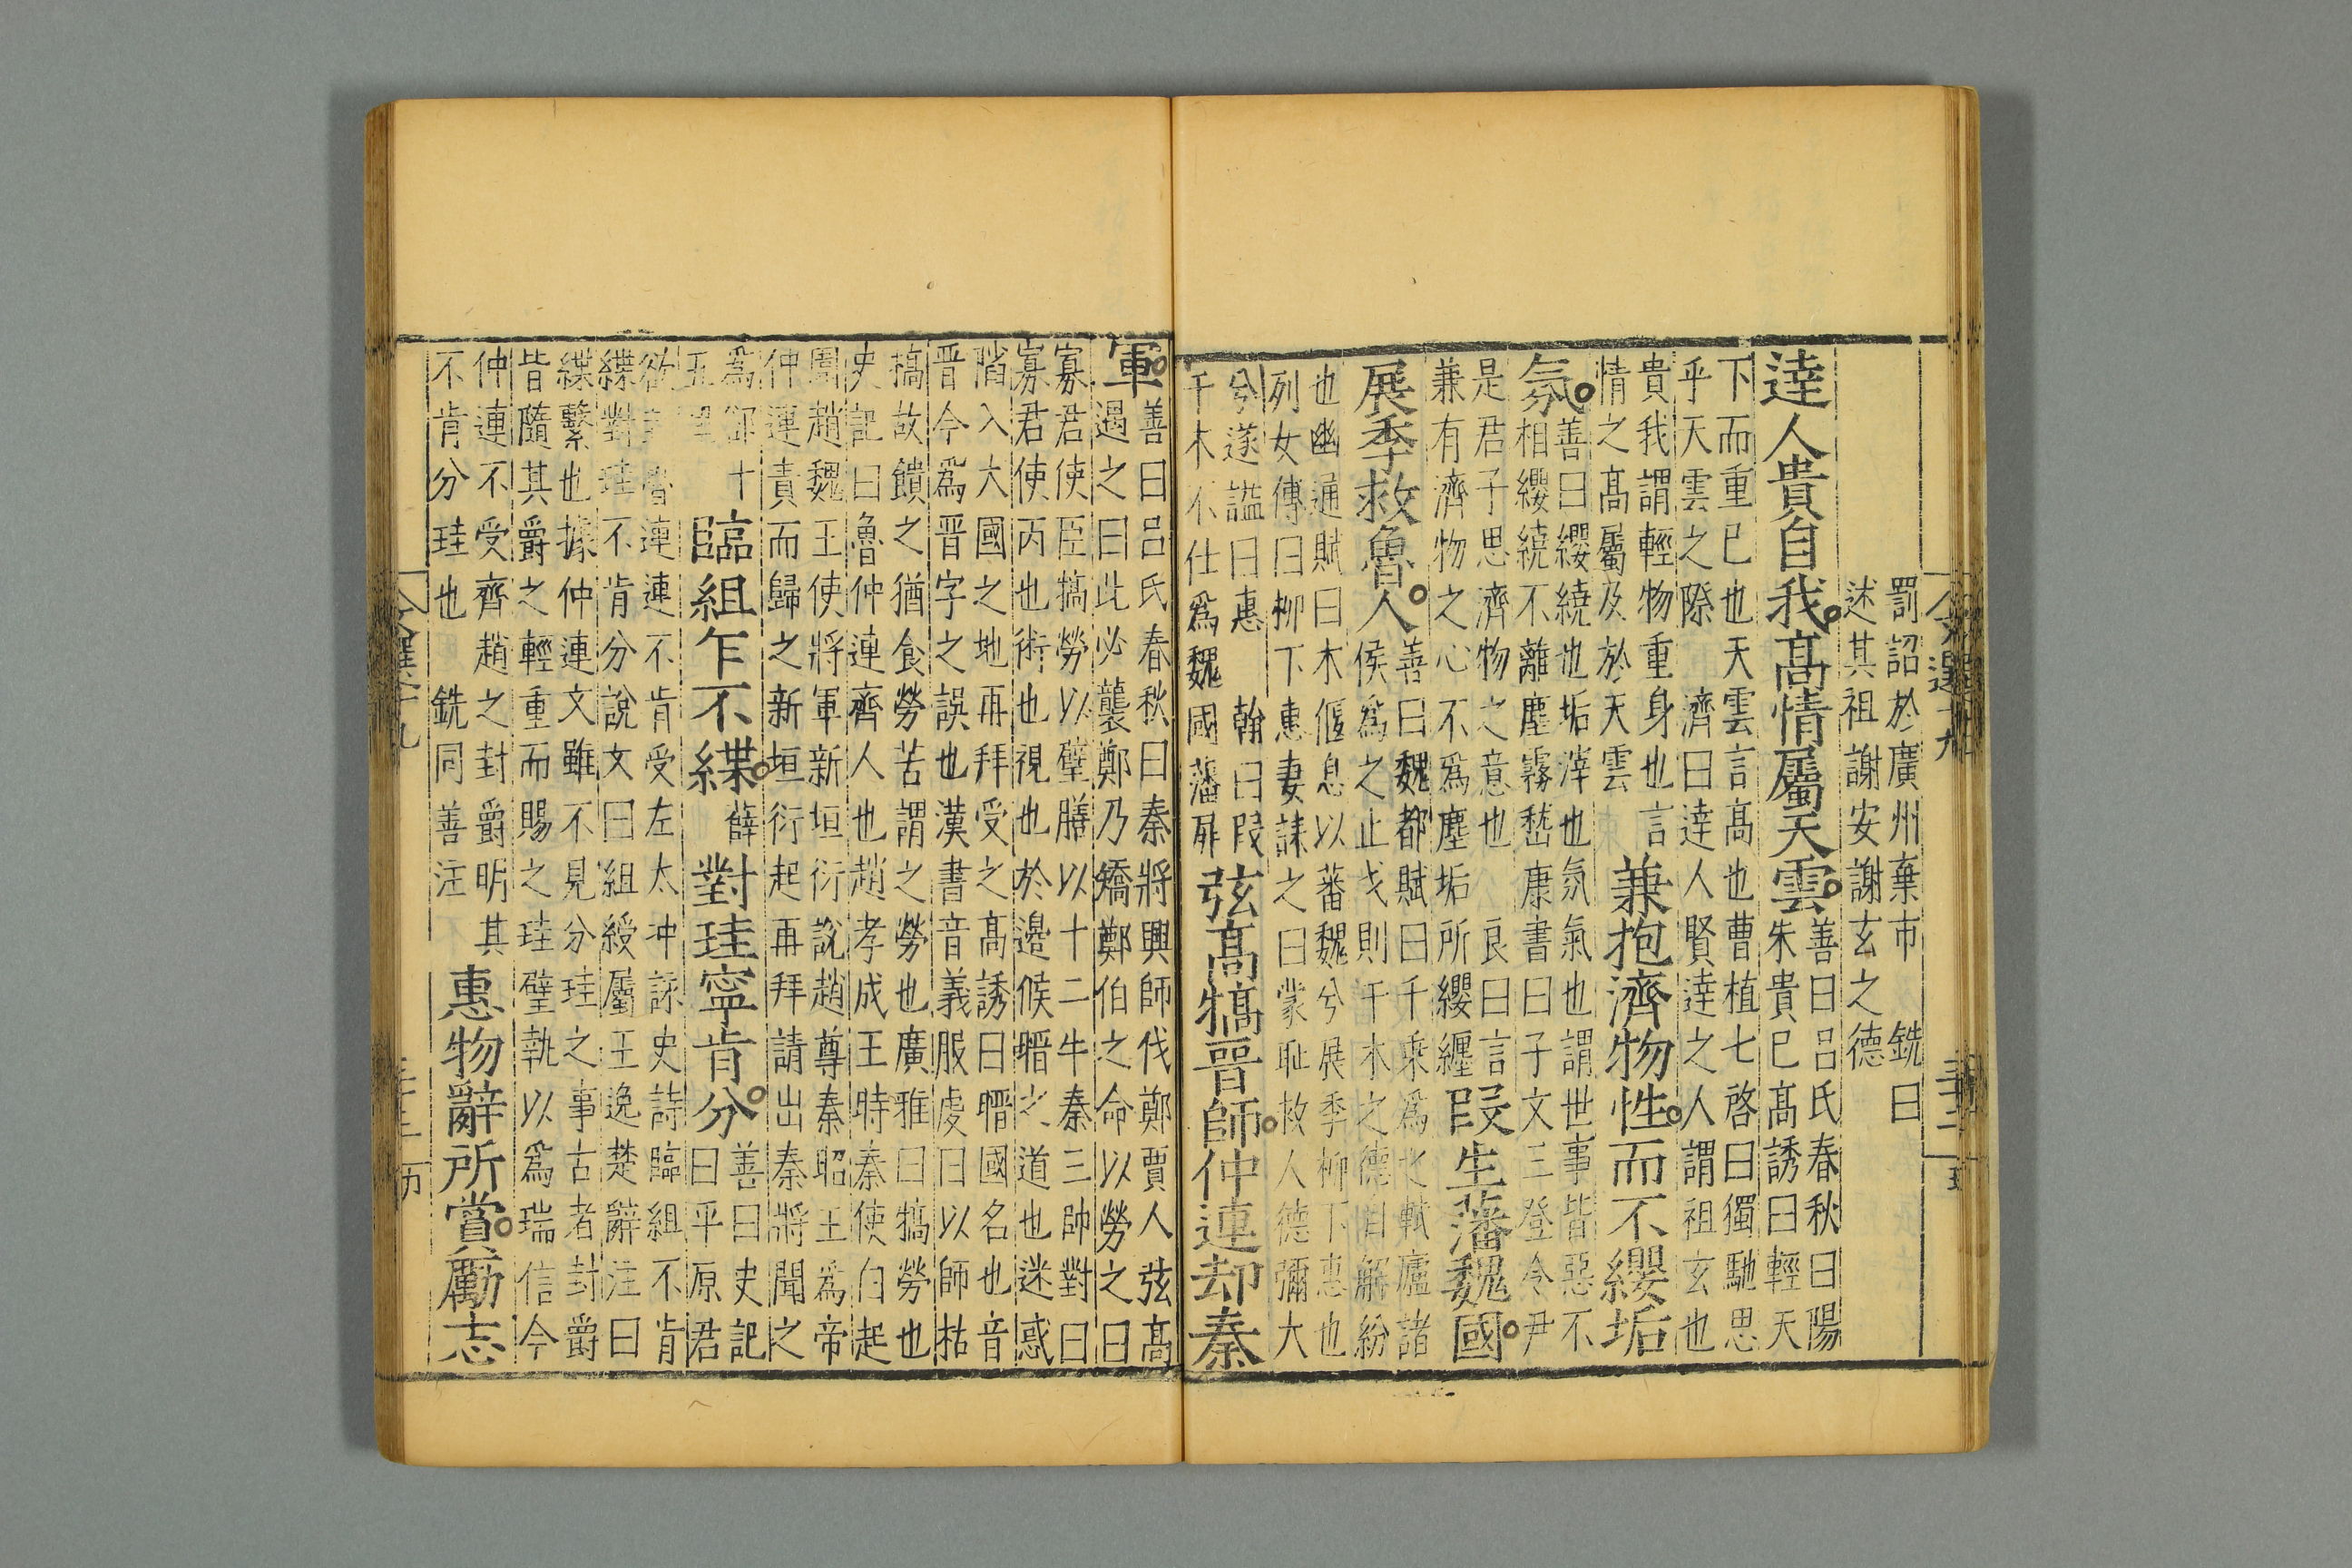 文選十九
三十二
罰詔於廣州棄市 銑曰
述其祖謝安謝玄之德
達人貴自我高情屬天雲
善曰呂氏春秋曰陽
朱貴已高誘曰輕天
下而重已也天雲言高也曹植七啓曰獨馳思
乎天雲之際 濟曰達人賢達之人謂祖玄也
貴我謂輕物重身也言
情之高屬及於天雲
兼抱濟物性而不纓垢
氛
善曰纓繞也垢滓也氛氣也謂世事皆惡不
相纓繞不離塵霧嵇康書曰子文三登令尹
是君子思濟物之意也 良曰言
兼有濟物之心不爲塵垢所纓纏
段生藩魏國
展季救魯人
善曰魏都賦曰千乘爲之軾廬諸
侯爲之止戈則干木之德自解紛
也幽通賦曰木偃息以蕃魏兮展季柳下惠也
列女傳曰柳下惠妻誄之曰蒙恥救人德彌大
兮遂謚曰惠 翰曰段
干木不仕爲魏國藩屏
弦高犒晉師仲連却秦
軍
善曰呂氏春秋曰秦將興師伐鄭賈人弦高
過之曰此必襲鄭乃矯鄭伯之命以勞之曰
寡君使臣犒勞以璧膳以十二牛秦三帥對曰
寡君使丙也術也視也於邊候㬜之道也迷惑
陷入大國之地再拜受之高誘曰㬜國名也音
晉今爲晉字之誤也漢書音義服虔曰以師枯
犒故饋之猶食勞苦謂之勞也廣雅曰犒勞也
史記曰魯仲連齊人也趙孝成王時秦使白起
圍趙魏王使將軍新垣衍說趙尊秦昭王爲帝
仲連責而歸之新垣衍起再拜請出秦將聞之
爲卻十
五里
臨組乍不緤
薛
對珪寧肯分
善曰史記
曰平原君
欲封魯連連不肯受左太沖詠史詩臨組不肯
緤對珪不肯分說文曰組綬屬王逸楚辭注曰
緤繫也據仲連文雖不見分珪之事古者封爵
皆隨其爵之輕重而賜之珪璧執以爲瑞信今
仲連不受齊趙之封爵明其
不肯分珪也 銑同善注
惠物辭所賞勵志